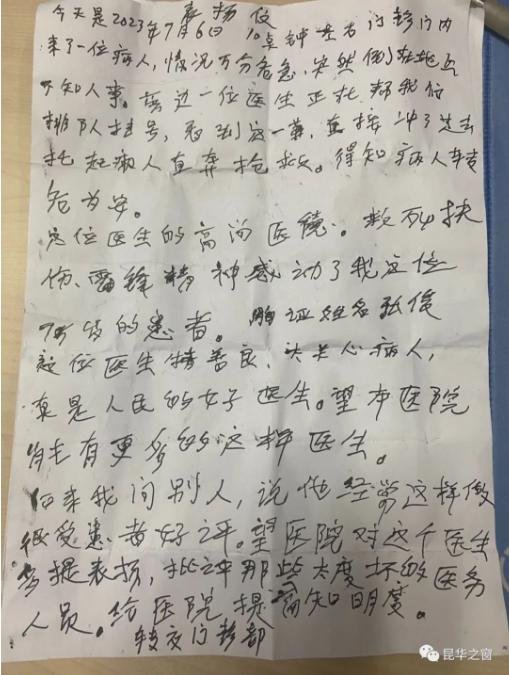 表扬信
今天是2023年7月6日 10点钟左右门诊门内
来了一位病人，情况万分危急，突然倒在地上
不知人事。旁边一位医生正在帮我们
排队挂号，看到这一幕，直接冲了过去
托起病人直奔抢救。得知病人转
危为安。
这位医生的高尚医德。救死扶
伤、雷锋精神感动了我这位
岁的患者。证姓名张俊
这位医生精善良、关心病人，
真是人民的好子医生。望本医院
有更多的这样医生。
后来我问别人，说他经常这样做
很受患者好评。望医院对这个医生
多提表扬，批评那些太度坏的医务
人员。给医院提高知明度。
门诊部
昆华之窗